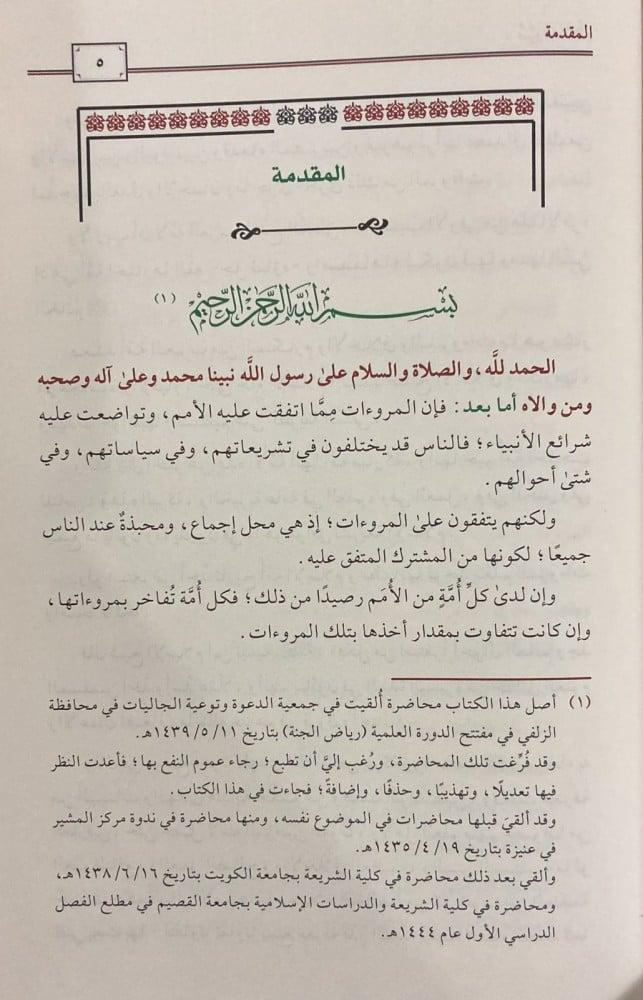 المقدمة
٥
المقدمة
بسم الله الرحمن الرحيم (١)
الحمد للَّه، والصلاة والسلام علىٰ رسول اللَّه نبينا محمد وعلىٰ آله وصحبه
ومن والاه أما بعد: فإن المروءات مِمَّا اتفقت عليه الأمم، وتواضعت عليه
شرائع الأنبياء؛ فالناس قد يختلفون في تشريعاتهم، وفي سياساتهم، وفي
شتىٰ أحوالهم.
ولكنهم يتفقون علىٰ المروءات؛ إذ هي محل إجماع، ومحبذةٌ عند الناس
جميعًا؛ لكونها من المشترك المتفق عليه.
وإن لدىٰ كلِّ أُمَّةٍ من الأُمَم رصيدًا من ذلك؛ فكل أُمَّة تُفاخر بمروءاتها،
وإن كانت تتفاوت بمقدار أخذها بتلك المروءات.
(١) أصل هذا الكتاب محاضرة أُلقيت في جمعية الدعوة وتوعية الجاليات في محافظة
الزلفي في مفتتح الدورة العلمية (رياض الجنة) بتاريخ ١١/ ٥/ ١٤٣٩هـ.
وقد فُرِّغت تلك المحاضرة، ورُغب إليَّ أن تطبع؛ رجاء عموم النفع بها؛ فأعدت النظر
فيها تعديلًا، وتهذيبًا، وحذفًا، وإضافةً؛ فجاءت في هذا الكتاب.
وقد ألقيَ قبلها محاضرات في الموضوع نفسه، ومنها محاضرة في ندوة مركز المشير
في عنيزة بتاريخ ١٩/ ٤/ ١٤٣٥هـ.
وألقي بعد ذلك محاضرة في كلية الشريعة بجامعة الكويت بتاريخ ١٦/ ٦/ ١٤٣٨هـ،
ومحاضرة في كلية الشريعة والدراسات الإسلامية بجامعة القصيم في مطلع الفصل
الدراسي الأول عام ١٤٤٤هـ.